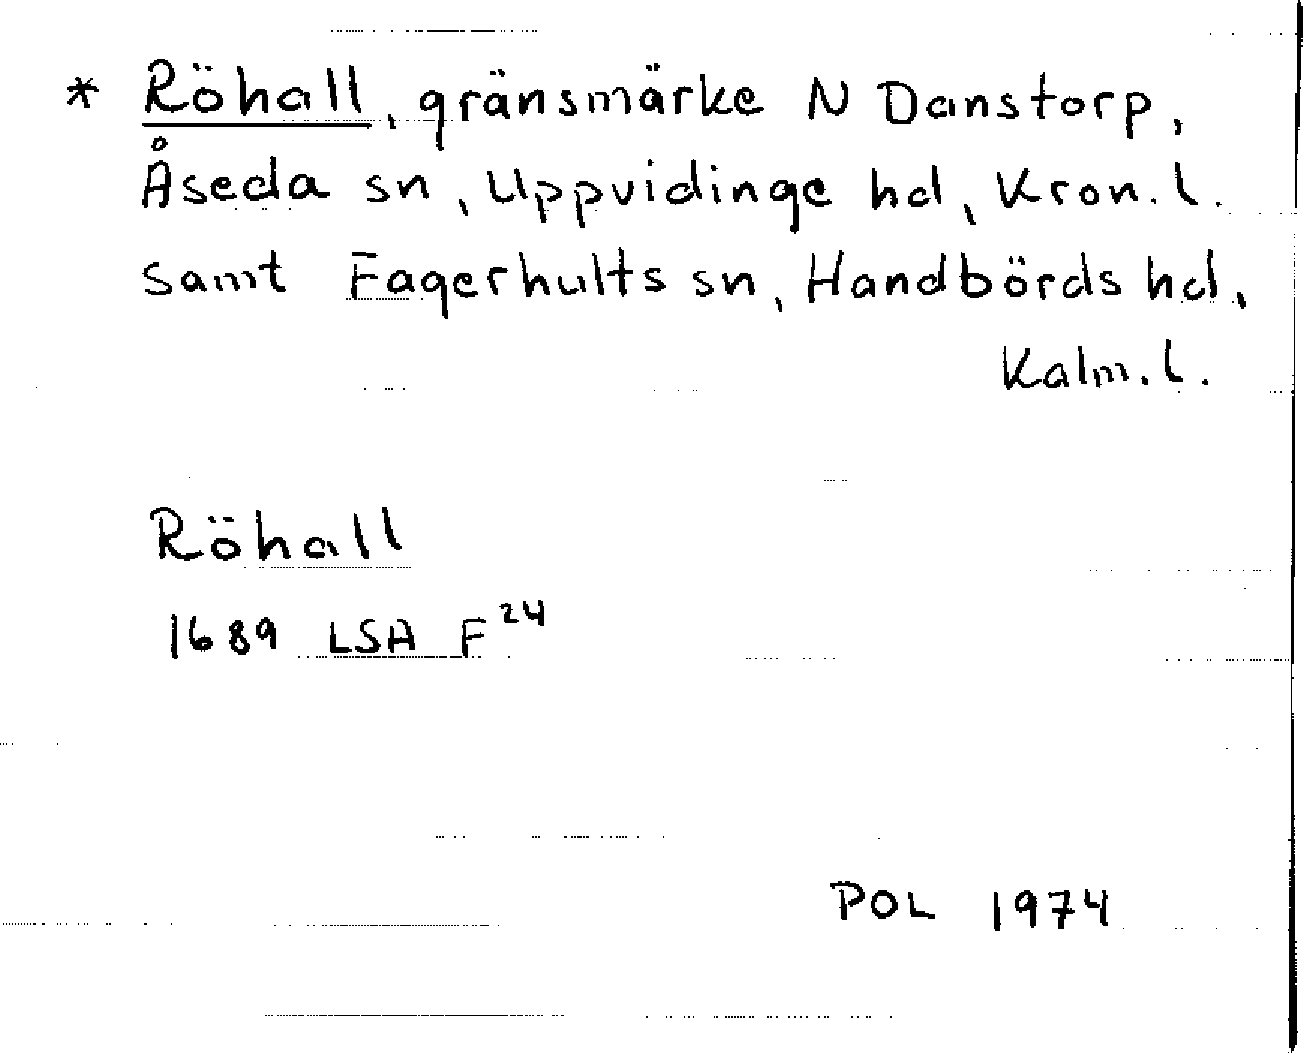 * Röhall, gränsmärke N Danstorp,
Åseda sn, Uppvidinge hd, Kron. l.
samt Fagerhults sn, Handbörds hd,
Kalm. l.
Röhall
1689 LSA F 24
POL 1974